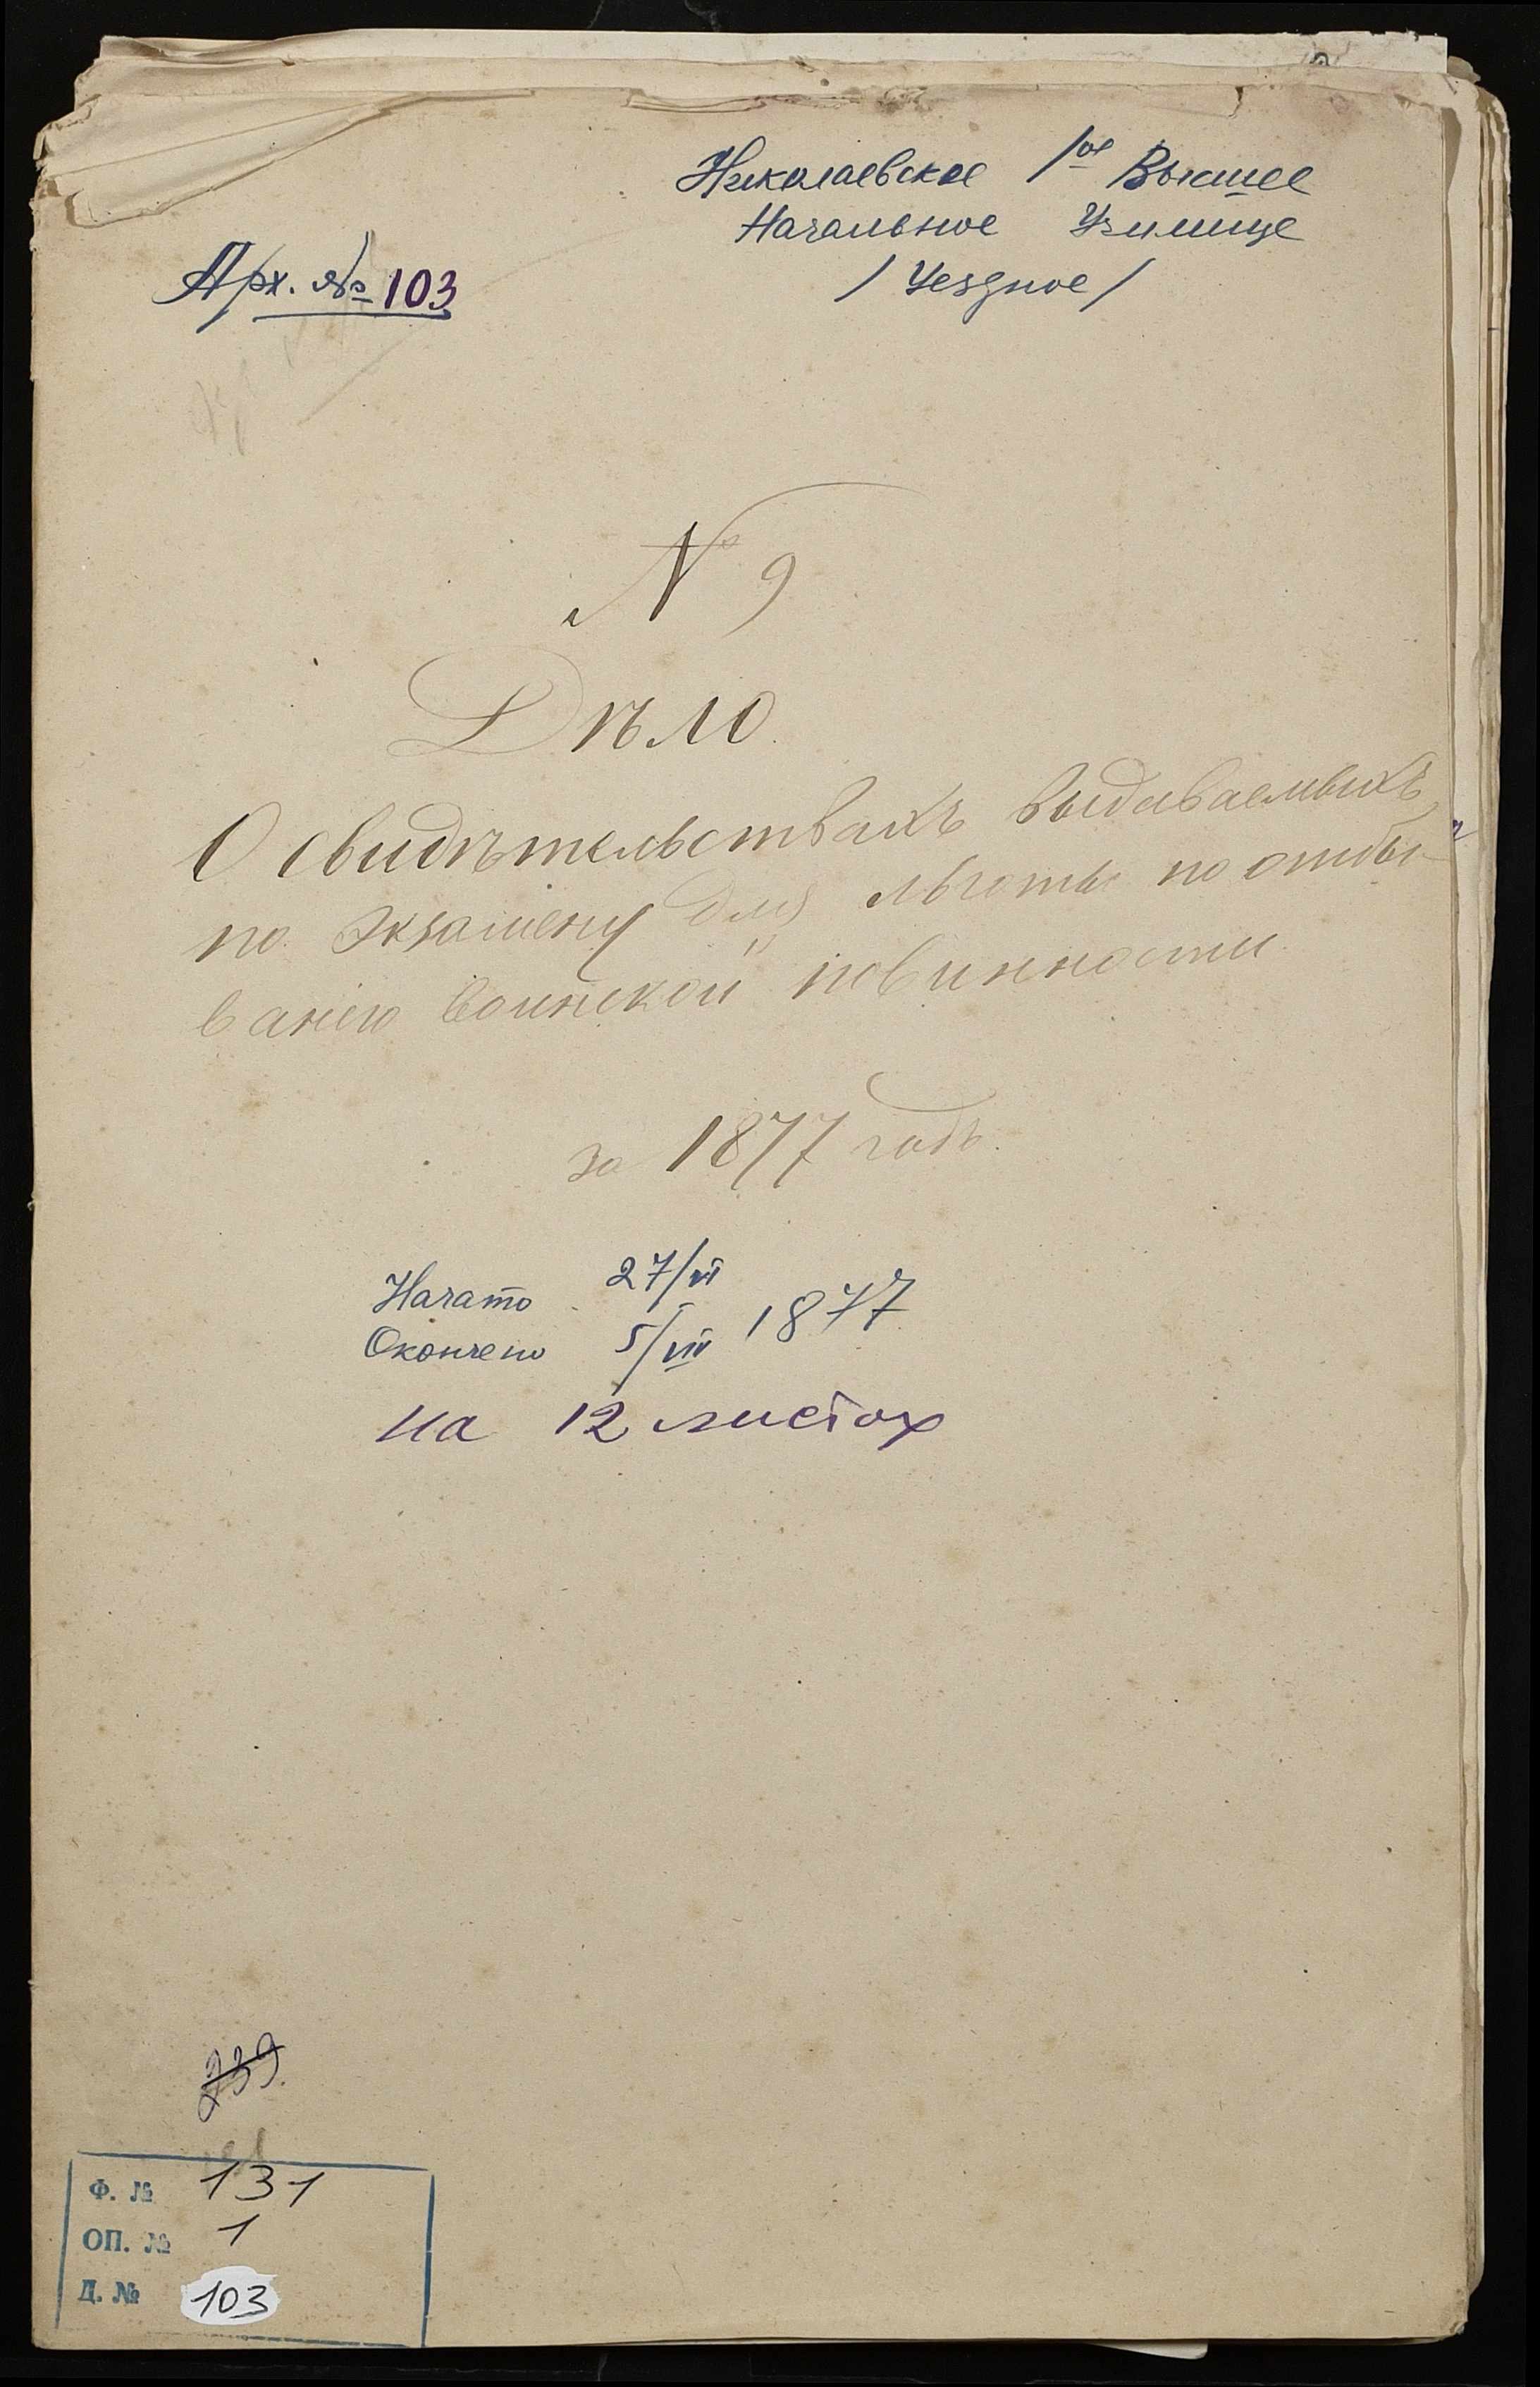 Николаевское 1ое Высшее
Начальное Училище
/Уездное/
Арх. № 103
№ 9
Дѣло.
О свидѣтельствахъ выдаваемыхъ
по экзамену для льготы по отбы-
ванію воинской повинности
за 1877 годъ.
Начато 27/VI
1877
Окончено 5/VIII
на 12 листах
739.
Ф. № 131
ОП. № 1
Д. № 103